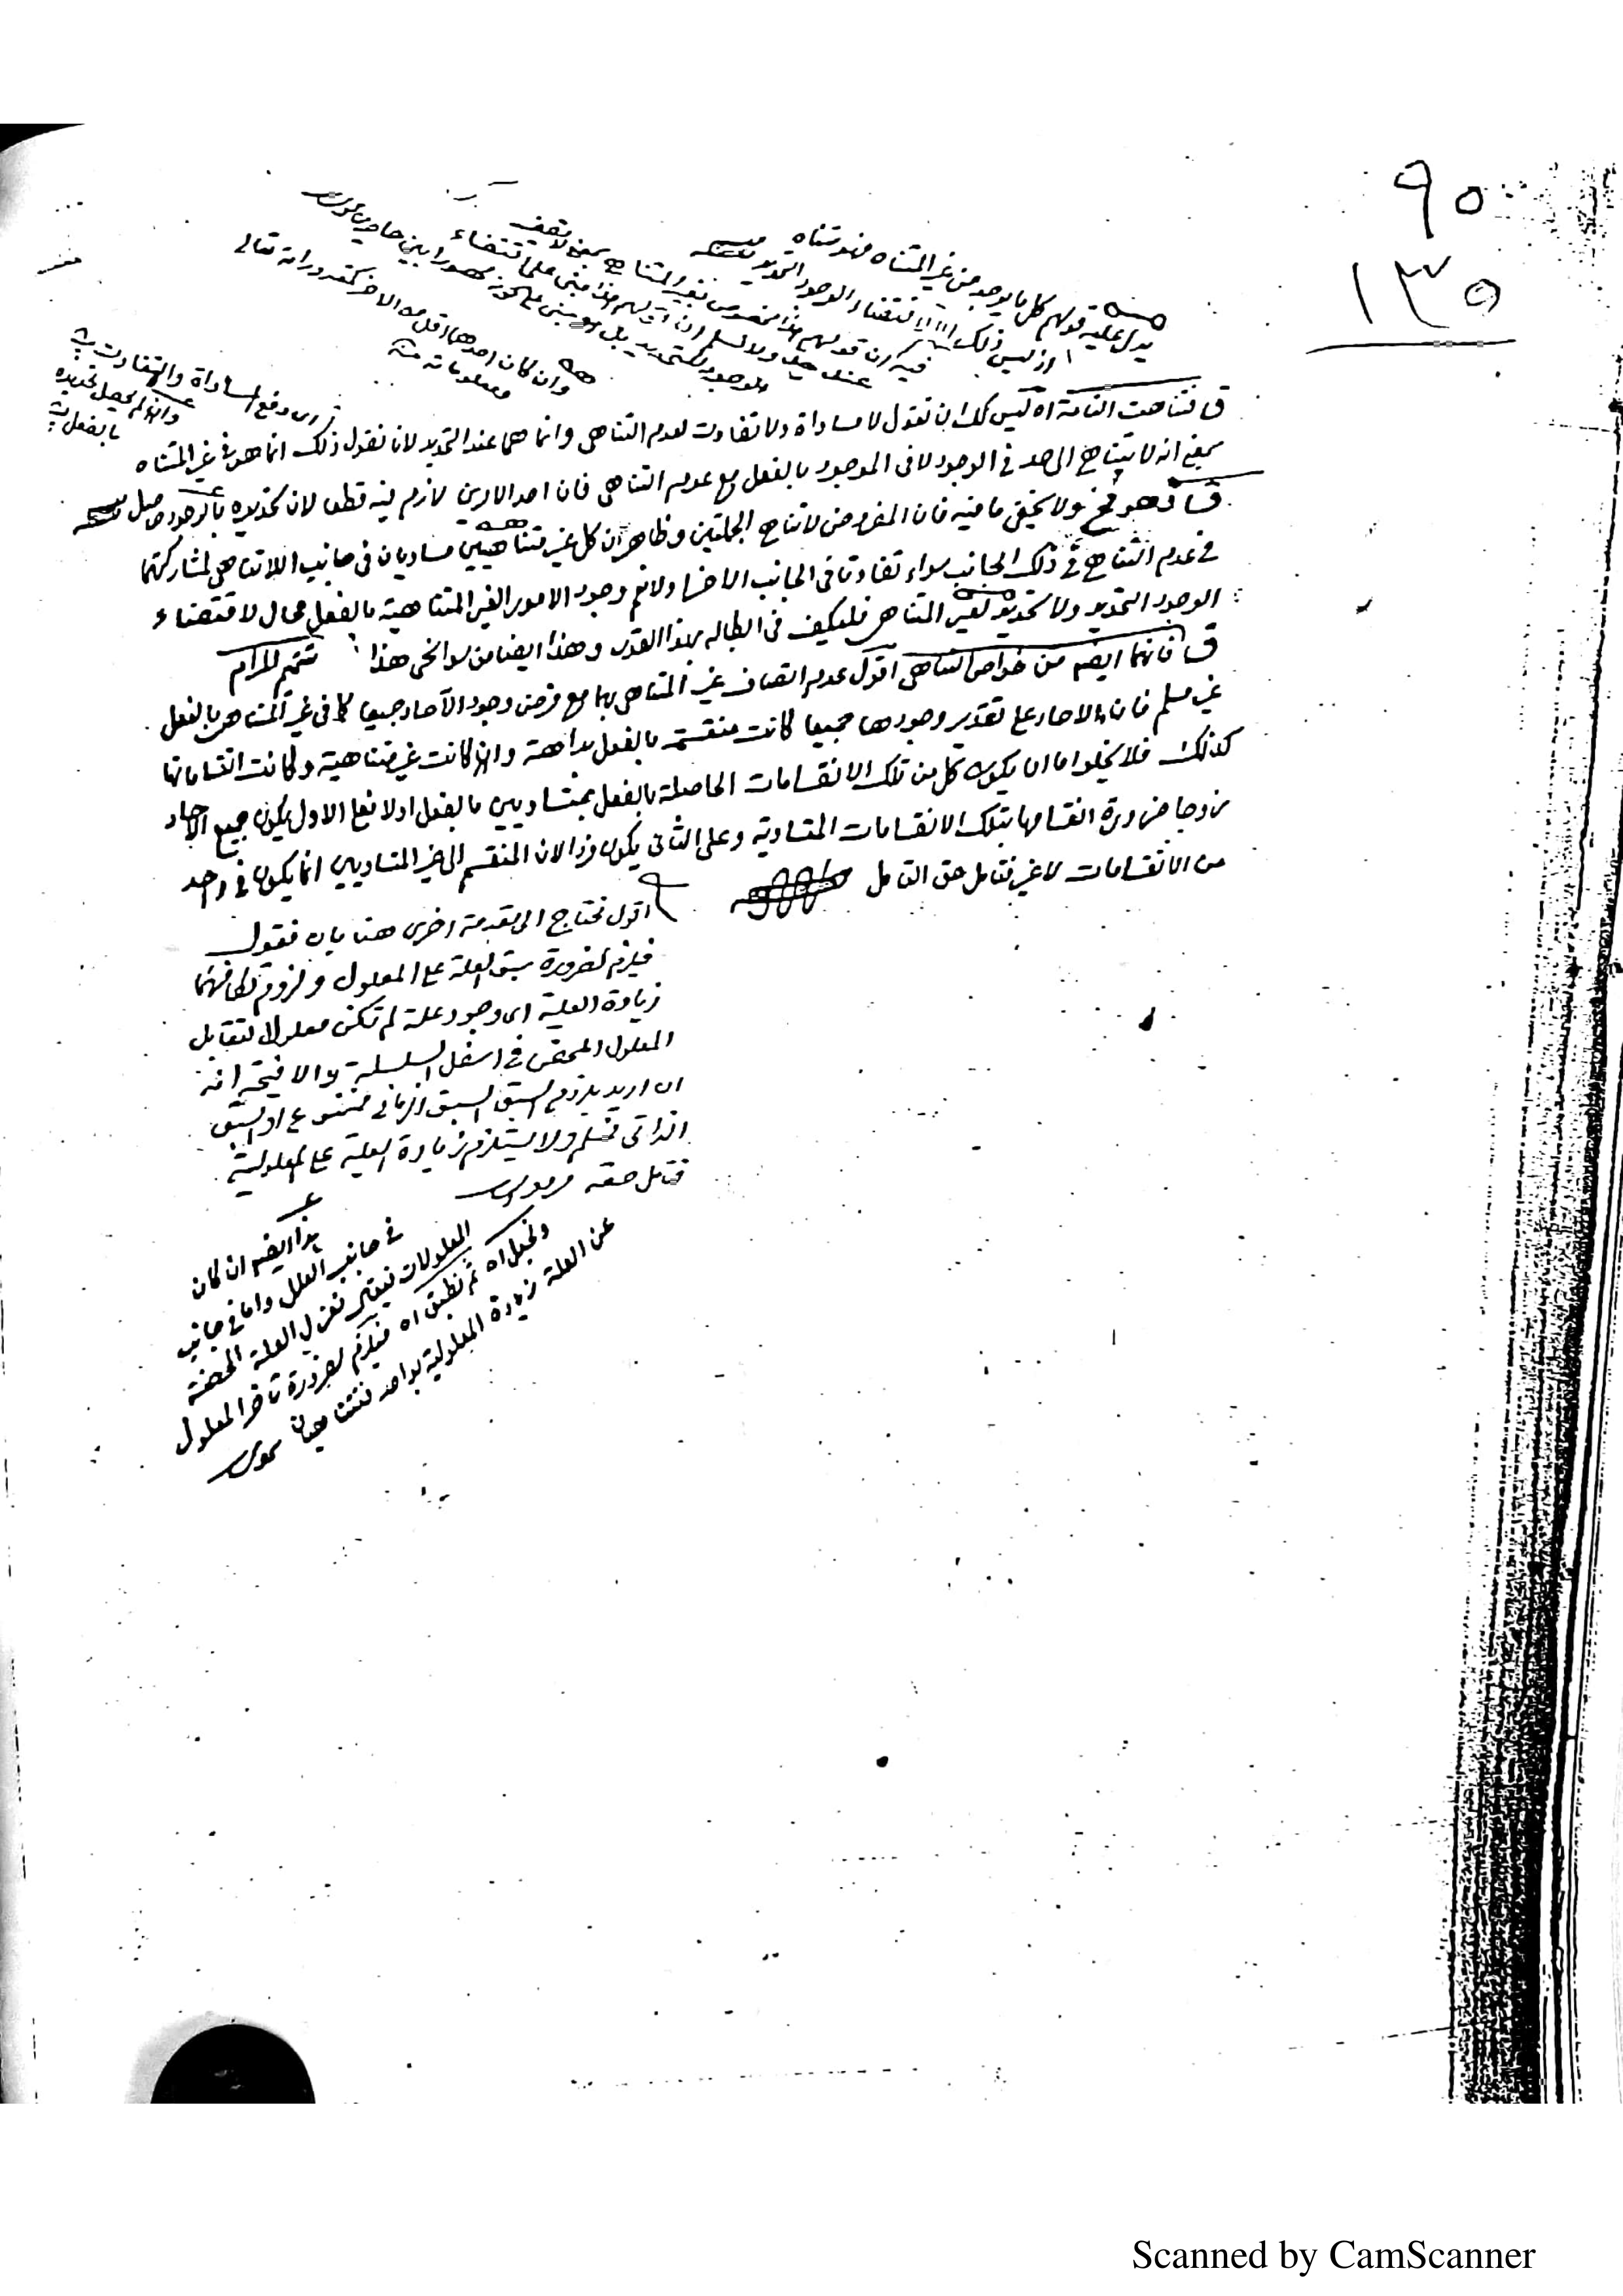 ٩٥
١٣٥
يدل عليه قولهم كل ما يوجد من غير المتناه فهو متناه
اذ ليس ذلك الا لاقتضاء الوجود التحديد منه
فيه ان قولهم هذا مخصوص بغير المتناهي بمعنى لا يقف
عند حد ولا نسلم ان قولهم هذا مبنى على اقتضاء
الوجود للتحديد بل هو مبنى على كونه محصورا بين حاصرين
وان كان احدهما اقل من الاخر كمقدوراته تعالى
ومعلوماته منه
اى دفع المساواة والتفاوت
وان لم يحصل تحديده
بالفعل
ق فتناهت التامة اه ليس لك ان تقول لا مساواة ولا تفاوت لعدم التناهى وانما هما عند التحديد لانا نقول ذلك انما هو فى غير المتناه
بمعنى انه لا يتناهى الى حد فى الوجود لا فى الموجود بالفعل مع عدم التناهى فان احد الامرين لازم فيه قطعا لان تحديده بالوجود حاصل منه
ق ولا يخفى ما فيه فان المفروض لا تناهى الجملتين وظاهر ان كل غير متناهيين مساويان فى جانب اللاتناهى لمشاركتهما
فى عدم التناهى فى ذلك الجانب سواء تفاوتا فى الجانب الاخر اولا نعم وجود الامور الغير المتناهية بالفعل محال لاقتضاء
الوجود التحديد ولا تحديد لغير المتناهى فليكيف فى ابطاله بهذا القدر وهذا ايضا من سوانحى هذا تتميم المرام
ق فانهما ايضا من خواص المتناهى اقول عدم اتصاف غير المتناهى بهما مع فرض وجود الآحاد جميعا كما فى غير المتناهى بالفعل
غير مسلم فان الاحاد على تقدير وجودها جميعا كانت منقسمة بالفعل بداهة وان كانت غير متناهية وكانت انقساماتها
كذلك فلا يخلو اما ان يكون كل من تلك الانقسامات الحاصلة بالفعل بمتساويين بالفعل اولا فعلى الاول يكون جميع الاحاد
زوجا ضرورة انقسامها بتلك الانقسامات المتساوية وعلى الثانى يكون فردا لان المنقسم الى غير المتساويين انما يكون فى واحد
من الانقسامات لا غير فتامل حق التامل
اقول نحتاج الى مقدمة اخرى هنا بان نقول
فيلزم لضرورة سبق العلة على المعلول ولزوم تكافئهما
زيادة العلية اى وجود علة لم تكن معلولا لتقابل
المعلول المحض فى اسفل السلسلة والا فيتجه انه
ان اريد بلزوم السبق السبق الزمانى فممنوع او السبق
الذاتى فمسلم ولا يستلزم زيادة العلية على المعلولية
فتامل حقه
هذا ايضا ان كان
فى جانب العلل واما فى جانب
المعلولات فيقال نعزل العلة المحضة
ونجعل اه ثم نطبق اه فيلزم لضرورة تأخر المعلول
عن العلة زيادة المعلولية بواحد فتتناهيان
Scanned by CamScanner